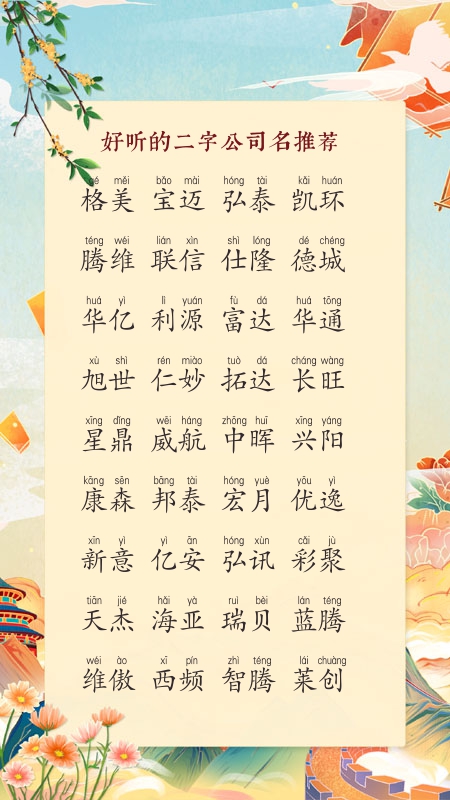 好听的二字公司名推荐
gé měi bǎo mài hóng tài kǎi huán
格美 宝迈 弘泰 凯环
téng wéi lián xìn shì lóng dé chéng
腾维 联信 仕隆 德城
huá yì lì yuán fù dá huá tōng
华亿 利源 富达 华通
xù shì rén miào tuò dá cháng wàng
旭世 仁妙 拓达 长旺
xīng dǐng wēi háng zhōng huī xīng yáng
星鼎 威航 中晖 兴阳
kāng sēn bāng tài hóng yuè yōu yì
康森 邦泰 宏月 优逸
xīn yì yì ān hóng xùn cǎi jù
新意 亿安 弘讯 彩聚
tiān jié hǎi yà ruì bèi lán téng
天杰 海亚 瑞贝 蓝腾
wéi ào xī pín zhì téng lái chuàng
维傲 西频 智腾 莱创